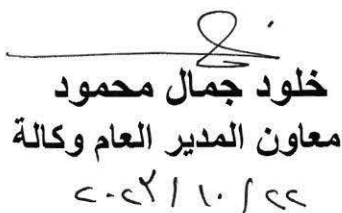 خلود جمال محمود
معاون المدير العام وكالة
٢٠٢٣/١٠/٢٢